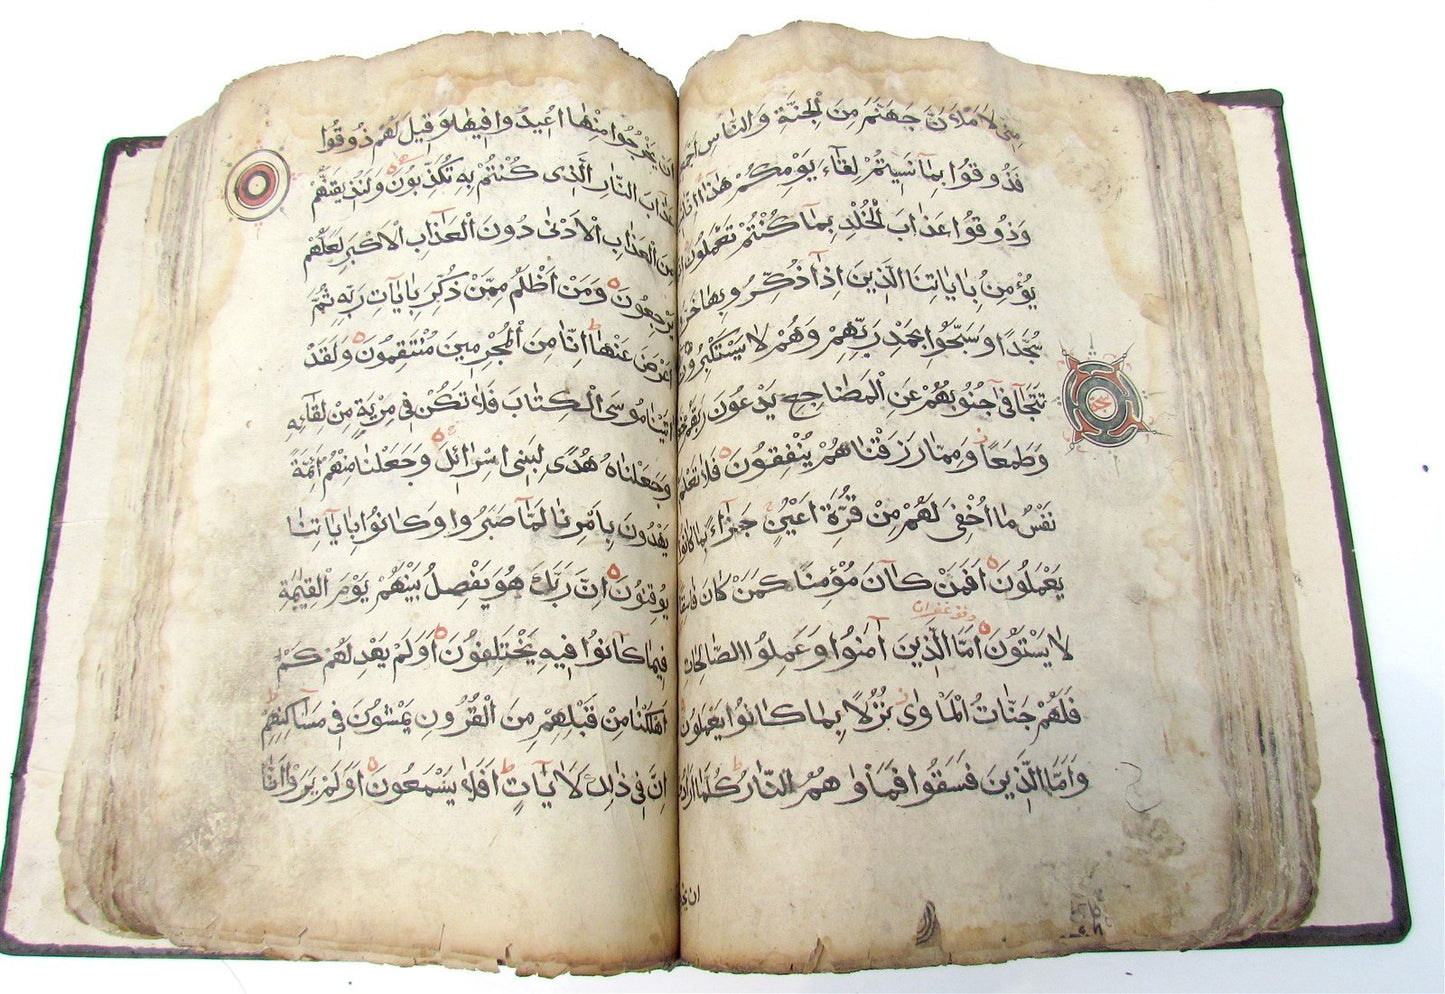 مِنِّى لَاَمْلَاَنَّ جَهَنَّمَ مِنَ الْجِنَّةِ وَالنَّاسِ
فَذُوقُوا بِمَآ نَسِيتُمْ لِقَآءَ يَوْمِكُمْ هٰذَا
وَذُوقُوا عَذَابَ الْخُلْدِ بِمَا كُنْتُمْ تَعْمَلُونَ
يُؤْمِنُ بِاٰيَاتِنَا الَّذِينَ اِذَا ذُكِّرُوا بِهَا
سُجَّدًا وَسَبَّحُوا بِحَمْدِ رَبِّهِمْ وَهُمْ لَا يَسْتَكْبِرُونَ
تَتَجَافٰى جُنُوبُهُمْ عَنِ الْمَضَاجِعِ يَدْعُونَ رَبَّهُمْ
سجدة
وَطَمَعًا وَمِمَّا رَزَقْنَاهُمْ يُنْفِقُونَ فَلَا تَعْلَمُ
نَفْسٌ مَا اُخْفِىَ لَهُمْ مِنْ قُرَّةِ اَعْيُنٍ جَزَآءً بِمَا كَانُوا
يَعْمَلُونَ اَفَمَنْ كَانَ مُؤْمِنًا كَمَنْ كَانَ فَاسِقًا
وقف غفران
لَا يَسْتَوُونَ اَمَّا الَّذِينَ اٰمَنُوا وَعَمِلُوا الصَّالِحَاتِ
فَلَهُمْ جَنَّاتُ الْمَأْوٰى نُزُلًا بِمَا كَانُوا يَعْمَلُونَ
وَاَمَّا الَّذِينَ فَسَقُوا فَمَأْوٰيهُمُ النَّارُ كُلَّمَا
اَنْ يَخْرُجُوا مِنْهَا اُعِيدُوا فِيهَا وَقِيلَ لَهُمْ ذُوقُوا
عَذَابَ النَّارِ الَّذِى كُنْتُمْ بِهِ تُكَذِّبُونَ وَلَنُذِيقَنَّهُمْ
مِنَ الْعَذَابِ الْاَدْنٰى دُونَ الْعَذَابِ الْاَكْبَرِ لَعَلَّهُمْ
يَرْجِعُونَ وَمَنْ اَظْلَمُ مِمَّنْ ذُكِّرَ بِاٰيَاتِ رَبِّهِ ثُمَّ
اَعْرَضَ عَنْهَا اِنَّا مِنَ الْمُجْرِمِينَ مُنْتَقِمُونَ وَلَقَدْ
اٰتَيْنَا مُوسَى الْكِتَابَ فَلَا تَكُنْ فِى مِرْيَةٍ مِنْ لِقَآئِهِ
وَجَعَلْنَاهُ هُدًى لِبَنِى اِسْرَائِلَ وَجَعَلْنَا مِنْهُمْ اَئِمَّةً
يَهْدُونَ بِاَمْرِنَا لَمَّا صَبَرُوا وَكَانُوا بِاٰيَاتِنَا
يُوقِنُونَ اِنَّ رَبَّكَ هُوَ يَفْصِلُ بَيْنَهُمْ يَوْمَ الْقِيٰمَةِ
فِيمَا كَانُوا فِيهِ يَخْتَلِفُونَ اَوَلَمْ يَهْدِ لَهُمْ كَمْ
اَهْلَكْنَا مِنْ قَبْلِهِمْ مِنَ الْقُرُونِ يَمْشُونَ فِى مَسَاكِنِهِمْ
اِنَّ فِى ذٰلِكَ لَاٰيَاتٍ اَفَلَا يَسْمَعُونَ اَوَلَمْ يَرَوْا اَنَّا